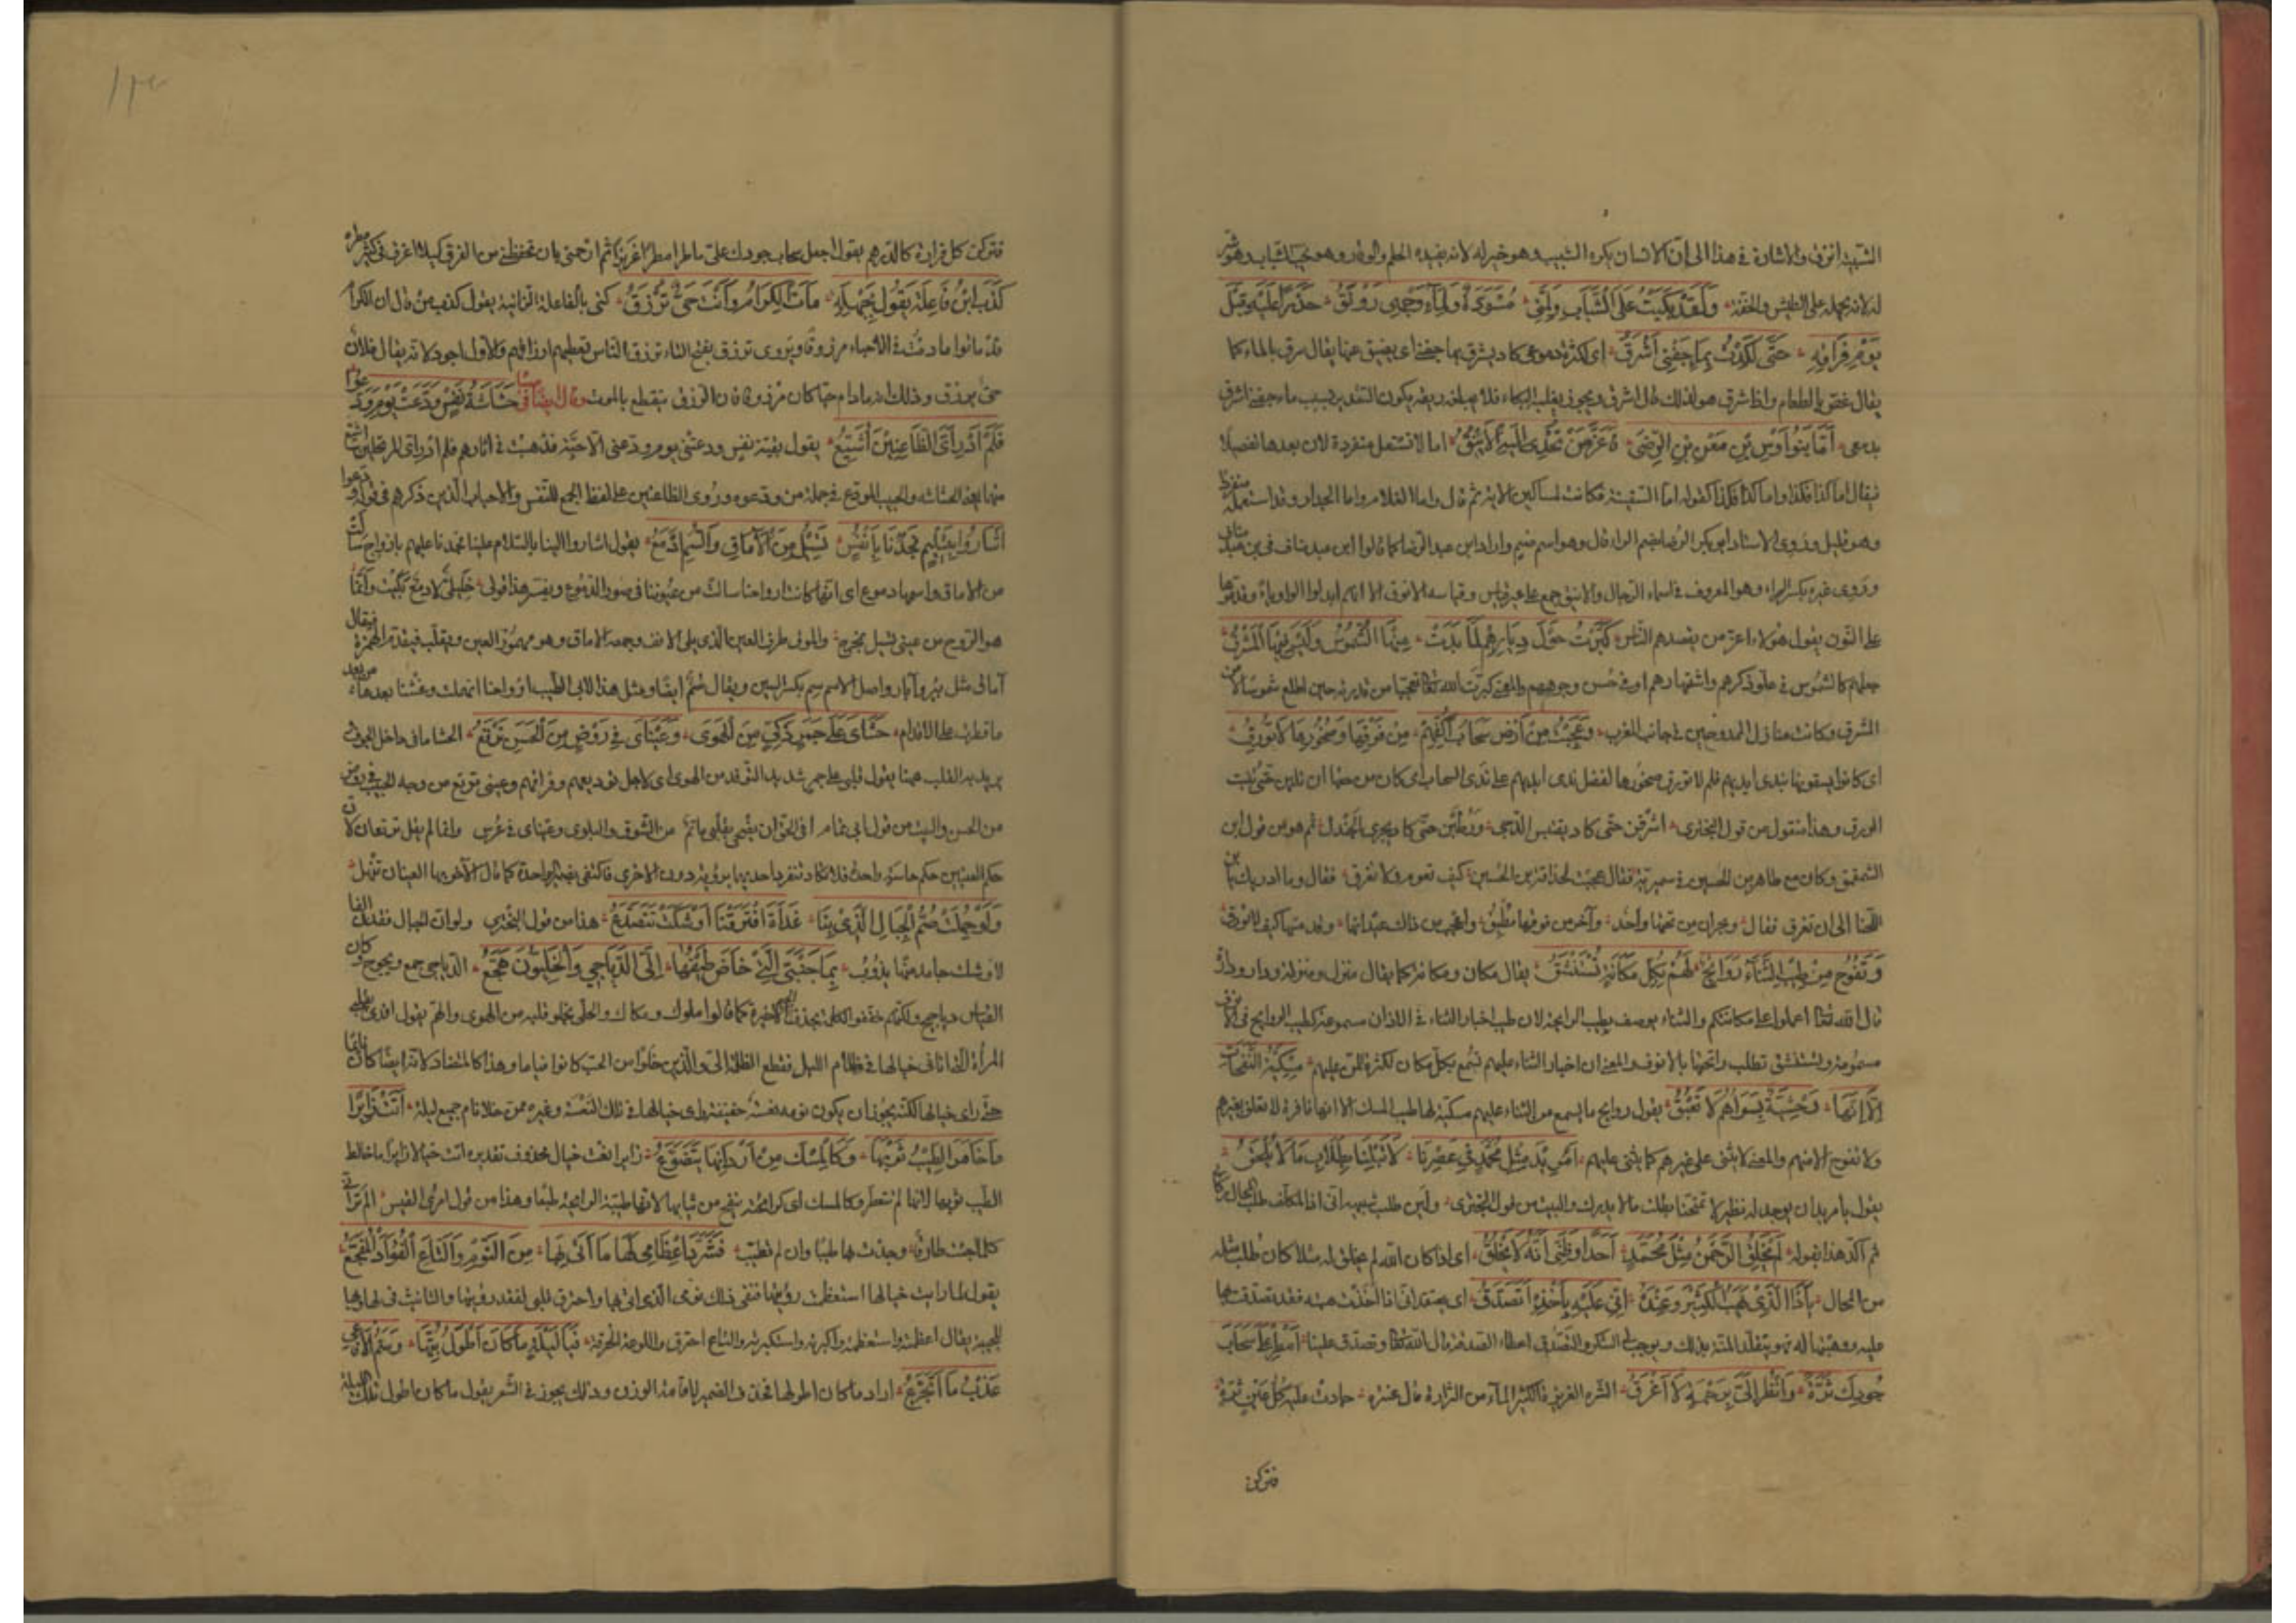 الشبيبة انزق والاشارة في هذا الى ان الانسان يكره الشيب وهو خير له لانه يفيده الحلم والوقار وهو يحب الشباب وهو شر
له لانه يحمله على الطيش والخفة وَلَقَدْ بَكَيْتُ عَلَى الشَّبَابِ وَلِمَّتِي مُسْوَدَّةٌ وَلِمَاءِ وَجْهِي رَوْنَقُ حَذَرًا عَلَيْهِ قَبْلَ
يَوْمِ فِرَاقِهِ حَتَّى لَكِدْتُ بِمَاءِ جَفْنِي أَشْرَقُ اى لكثرة دموعى كاد يشرق بها جفنى اى يضيق عنها يقال شرق بالماء كما
يقال غص بالطعام واذا شرق هو لذلك قال اشرق ويجوز يغلب البكاء فلا يبلغه ريقه يكون التقدير بسبب ماء جفنى اشرق
بدمعى أَمَّا بَنُو أَوْسِ بْنِ مَعْنِ بْنِ الرِّضَى فَأَعَزُّ مَنْ تُحْدَى إِلَيْهِ الْأَيْنُقُ اما لا تستعمل مفردة لان بعدها تفصيلا
فيقال اما كذا فكذا واما كذا فكذا كقوله اما السفينة فكانت لمساكين الاية ثم قال واما الغلام واما الجدار وقد استعمله مفردا
وهو قليل وروى الاستاد ابو بكر الرضا بضم الراء قال وهو اسم صنم واراد ابن عبد الرضا كما قالوا ابن مناف فى بن عبد مناف
وروى غيره بكسر الراء وهو المعروف فى اسماء الرجال والاينق جمع على غير قياس وقياسه الانوق الا انهم ابدلوا الواو ياء وقدموها
على النون يقول هؤلاء اعز من يقصدهم الناس كَبَّرْتُ حَوْلَ دِيَارِهِمْ لَمَّا بَدَتْ مِنْهَا الشُّمُوسُ وَلَيْسَ فِيهَا الْمَشْرِقُ
جعلهم كالشموس فى علو ذكرهم واشتهارهم او فى حسن وجوههم والمعنى كبرت الله تعالى تعجبا من قدرته حين اطلع شموسا لا من
المشرق وكانت منازل الممدوحين فى جانب المغرب وَعَجِبْتُ مِنْ أَرْضٍ سَحَابُ أَكُفِّهِمْ مِنْ فَوْقِهَا وَصُخُورُهَا لَا تُورِقُ
اى كانوا يسقونها بندى ايديهم فلم لا تورق صخورها لفضل ندى ايديهم على ندى السحاب اى كان من حقها ان تلين حتى تنبت
الورق وهذا منقول من قول البحترى اشرقن حتى كاد يقتبس الدجى ورطبن حتى كاد يجرى الجندل ثم هو من قول ابن
الشمقمق وكان مع طاهر بن الحسين فى سميرية فقال عجبت لحراقة بن الحسين كيف تعوم ولا تغرق فقال وما ادريك يا بن
اللخنا الى ان تغرق فقال وبحران من تحتها واحد وآخر من فوقها مطبق واعجب من ذاك عيدانها وقد مسها كيف لا تورق
وَتَفُوحُ مِنْ طِيبِ الثَّنَاءِ رَوَائِحٌ لَهُمُ بِكُلِّ مَكَانَةٍ تُسْتَنْشَقُ يقال مكان ومكانة كما يقال منزل ومنزلة ودار ودارة
قال الله تعالى اعملوا على مكانتكم والثناء يوصف بطيب الرايحة لان طيب اخبار الثناء فى الاذان مسموعة كطيب الروايح فى الانوف
مشمومة وتستنشق تطلب رائحتها بالانوف والمعنى ان اخبار الثناء عليهم تسمع بكل مكان لكثرة المثنى عليهم مِسْكِيَّةُ النَّفَحَاتِ
إِلَّا إِنَّهَا وَحْشِيَّةٌ بِسِوَاهُمُ لَا تَعْبَقُ يقول روايح ما يسمع من الثناء عليهم مسكية لها طيب المسك الا انها نافرة لا تعلق بغيرهم
ولا تفوح الا منهم والمعنى لا يثنى على غيرهم كما يثنى عليهم أَمُرِيدَ مِثْلِ مُحَمَّدٍ فِي عَصْرِنَا لَا تَبْلُنَا بِطِلَابِ مَا لَا يُلْحَقُ
يقول يا من يريد ان يوجد له نظير لا تمتحنا بطلب ما لا يدرك والبيت من قول البحترى ولئن طلبت شبيهه انى اذا لمكلف طلب المحال ركابى
ثم اكد هذا بقوله لَمْ يَخْلُقِ الرَّحْمَنُ مِثْلَ مُحَمَّدٍ أَحَدًا وَظَنِّي أَنَّهُ لَا يَخْلُقُ اى اذا كان الله لم يخلق له مثلا كان طلب مثله
من المحال يَا ذَا الَّذِي يَهَبُ الْكَثِيرَ وَعِنْدَهُ أَنِّي عَلَيْهِ بِأَخْذِهِ أَتَصَدَّقُ اى يعتقد انى اذا اخذت هبته فقد تصدقت بها
عليه ووهبتها له فهو يتقلد المنة بذلك ويوجب الشكر والتصدق اعطاء الصدقة قال الله تعالى وتصدق علينا أَمْطِرْ عَلَيَّ سَحَابَ
جُودِكَ ثَرَّةً وَانْظُرْ إِلَيَّ بِرَحْمَةٍ لَا أَغْرَقُ الثرة الغزيرة الكثيرة الماء من الثرارة قال عنترة جادت عليه كل عين ثرة
فتركن
فتركن كل قرارة كالدرهم يقول اجعل سحاب جودك على ماطرا مطرا غزيرا ثم ارحمنى بان تحفظنى من الغرق كيلا اغرق فى كثير مطره
كَذَبَ ابْنُ فَاعِلَةٍ يَقُولُ بِجَهْلِهِ مَاتَ الْكِرَامُ وَأَنْتَ حَيٌّ تُرْزَقُ كنى بالفاعلة الزانية يقول كذب من قال ان الكرام
قد ماتوا ما دمت فى الاحياء مرزوقا ويروى ترزق بفتح التاء ترزق الناس تعطيهم ارزاقهم والاول اجود لانه يقال فلان
حى يرزق وذلك انه ما دام حيا كان مرزوقا لان الرزق ينقطع بالموت وقال ايضا فى صباه حُشَاشَةُ نَفْسٍ وَدَّعَتْ يَوْمَ وَدَّعُوا
فَلَمْ أَدْرِ أَيَّ الظَّاعِنِينَ أُشَيِّعُ يقول بقية نفس ودعتنى يوم ودعنى الاحبة فذهبت فى اثارهم فلم ادر اى المرتحلين اشيع
منهما يعنى الحشاشة والحبيب المودع فى جملة من ودعوه وروى الظاعنين على لفظ الجمع للنفس والاحباب الذين ذكرهم فى قوله ودعوا
أَشَارُوا بِتَسْلِيمٍ فَجُدْنَا بِأَنْفُسٍ تَسِيلُ مِنَ الْآمَاقِ وَالسِّمُ أَدْمُعُ يقول اشاروا الينا بالسلام علينا فجدنا عليهم بارواح سالت
من الاماق واسمها دموع اى انها كانت ارواحنا سالت من عيوننا فى صور الدموع ويفسر هذا قولى خليلى لا دمع بكيت وانما
هو الروح من عينى تسيل فتخرج والموق طرف العين الذى يلى الانف وجمعه الاماق وهو مهموز العين ويقلب فيقدم الهمزة فيقال
آماق مثل بئر وآبار واصل الاسم سم بكسر السين ويقال سم ايضا ومثل هذا لابى الطيب ارواحنا انهملت وعشنا بعدها من بعد
ما قطرت على الاقدام حَشَايَ عَلَى جَمْرٍ ذَكِيٍّ مِنَ الْهَوَى وَعَيْنَايَ فِي رَوْضٍ مِنَ الْحُسْنِ تَرْتَعُ الحشا ما فى داخل الجوف
يريد به القلب هيهنا يقول قلبى على جمر شديد التوقد من الهوى اى لاجل توديعهم وفراقهم وعينى ترتع من وجه الحبيب فى روض
من الحسن والبيت من قول ابى تمام افى الحق ان يضحى بقلبى ماتم من الشوق والبلوى وعيناى فى عرس وانما لم يقل ترتعان لان
حكم العينين حكم حاسة واحدة فلا تكاد تنفرد احديهما برؤية دون الاخرى فاكتفى بضمير الواحدة كما قال الآخر بها العينان تنهل
وَلَوْ حُمِّلَتْ صُمُّ الْجِبَالِ الَّذِي بِنَا غَدَاةَ افْتَرَقْنَا أَوْشَكَتْ تَتَصَدَّعُ هذا من قول البحترى ولو ان الجبال فقدن الفا
لاوشك جامد منها يذوب بِمَا جَنْبَيَّ الَّتِي خَاضَ طَيْفُهَا إِلَيَّ الدَّيَاجِي وَالْخَلِيُّونَ هُجَّعُ الدياجى جمع ديجوج وكان
القياس دياجيج ولكنهم خففوا الكلمة بحذف الجيم الاخيرة كما قالوا مكوك ومكاك والخلى يخلو قلبه من الهوى والهم يقول افدى بقلبى
المرأة التى اتانى خيالها فى ظلام الليل فقطع الظلمة الى والذين خلوا من الحب كانوا نياما وهذا كالمتضاد لانه ايضا كان نائما
حتى راى خيالها لكنه يجوز ان يكون نومه نعسة خفيفة راى خيالها فى تلك النعسة وغيره ممن خلا نام جميع ليله أَتَتْ زَائِرًا
مَا خَامَرَ الطِّيبُ ثَوْبَهَا وَكَالْمِسْكِ مِنْ أَرْدَانِهَا يَتَضَوَّعُ زايرا نعت خيال محذوف تقديره اتت خيالا زايرا ما خالط
الطيب ثوبها اى انها لم تتعطر وكالمسك اى كرائحته يفيح من ثيابها لانها طيبة الرايحة طبعا وهذا من قول امرئ القيس الم تر انى
كلما جئت طارقا وجدت بها طيبا وان لم تطيب فَشَرَّدَ إِعْظَامِي لَهَا مَا أَتَى بِهَا مِنَ النَّوْمِ وَالْتَاعَ الْفُؤَادُ الْمُفَجَّعُ
يقول لما رايت خيالها استعظمت رؤيتها فنفى ذلك نومى الذى اتى بها واحترق قلبى لفقد رؤيتها والتانيث فى لها وبها
للحبيبة يقال اعظمته واستعظمته واكبرته واستكبرته والتاع احترق واللوعة الحرقة فَيَا لَيْلَةً مَا كَانَ أَطْوَلَ بِتُّهَا وَسُمُّ الْأَفَاعِي
عَذْبُ مَا أَتَجَرَّعُ اراد ما كان اطولها فحذف الضمير لاقامة الوزن وذلك يجوز فى الشعر يقول ما كان اطول تلك الليلة